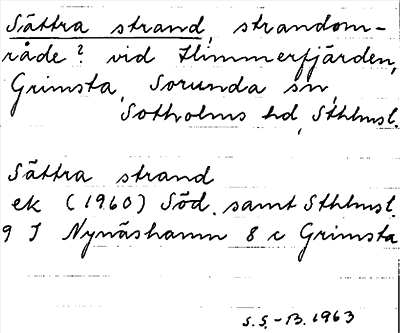 Sättra strand, strandom-
råde? vid Himmerfjärden,
Grimsta, Sorunda sn,
Sotholms hd, Sthlmsl.
Sättra strand
ek (1960) Söd. samt Sthlmsl.
9 I Nynäshamn 8 c Grimsta
S.S.-B. 1963